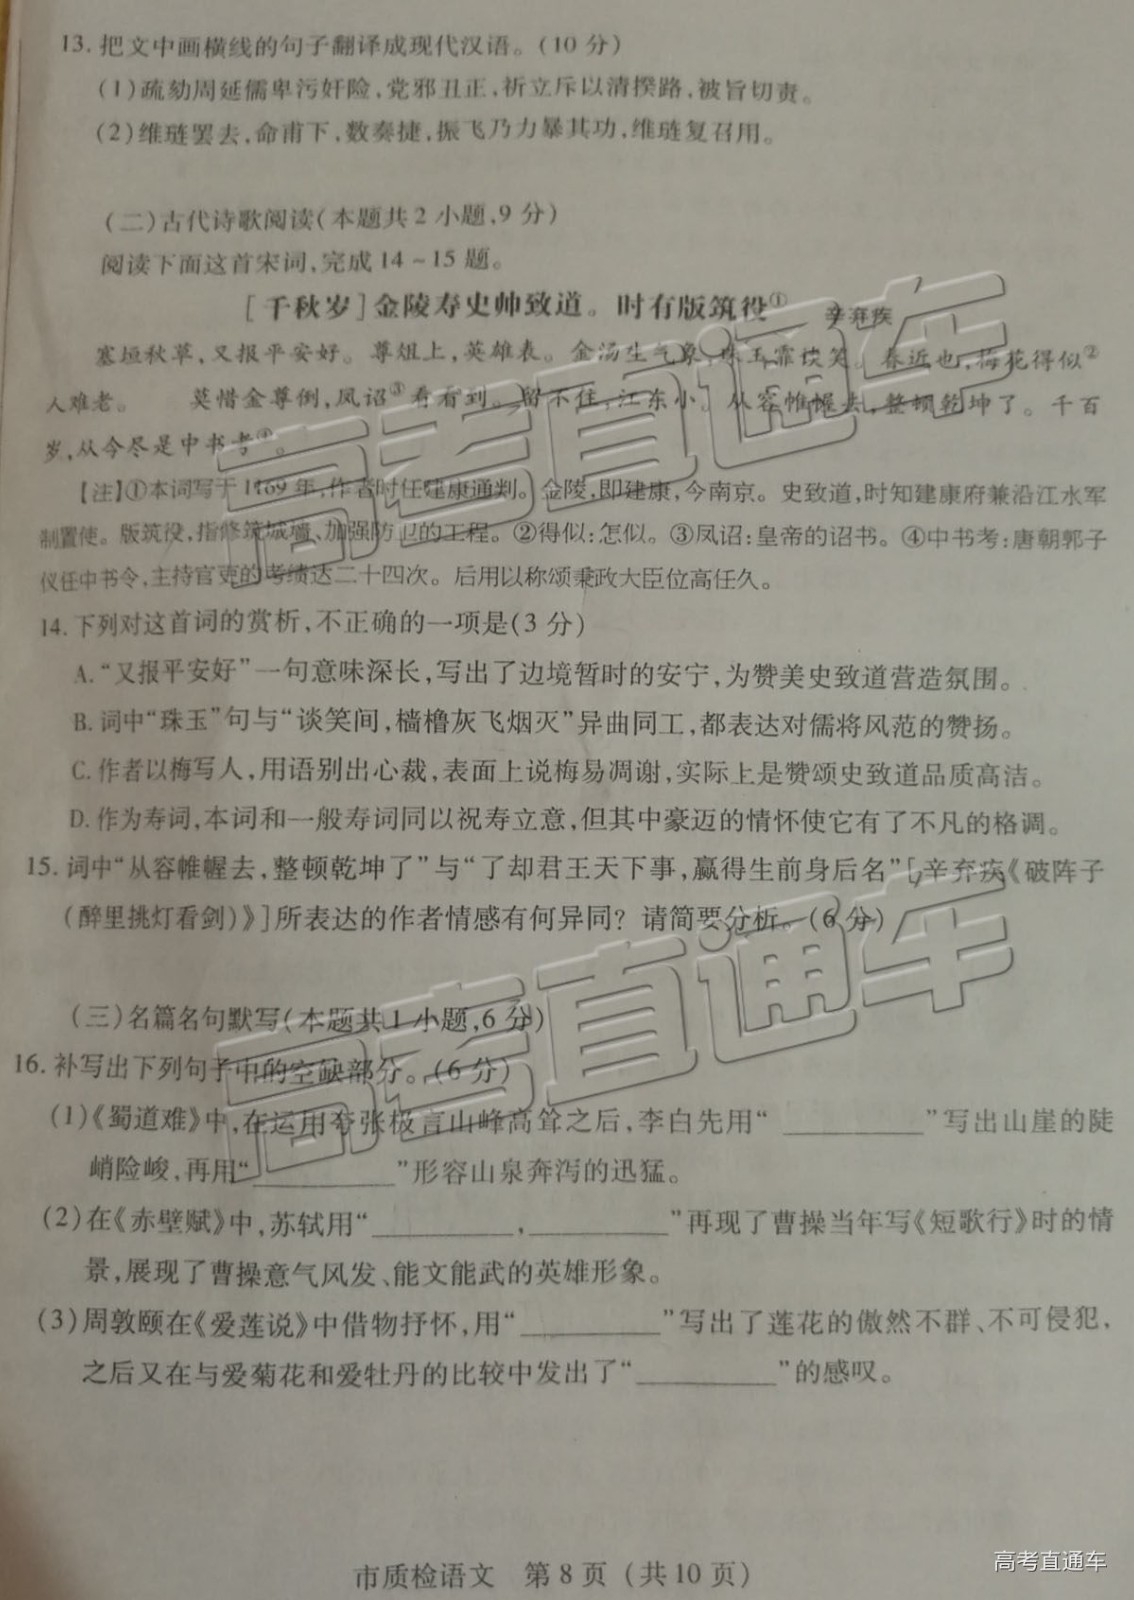 13. 把文中画横线的句子翻译成现代汉语。(10 分)
(1)疏劾周延儒卑污奸险,党邪丑正,祈立斥以清揆路,被旨切责。
(2)维琏罢去,命甫下,数奏捷,振飞乃力暴其功,维琏复召用。
(二)古代诗歌阅读(本题共 2 小题,9 分)
阅读下面这首宋词,完成 14~15 题。
[千秋岁]金陵寿史帅致道。时有版筑役① 辛弃疾
塞垣秋草,又报平安好。尊俎上,英雄表。金汤生气象,珠玉霏谈笑。春近也,梅花得似②
人难老。 莫惜金尊倒,凤诏③看看到。留不住,江东小。从容帷幄去,整顿乾坤了。千百
岁,从今尽是中书考④。
【注】①本词写于1169年,作者时任建康通判。金陵,即建康,今南京。史致道,时知建康府兼沿江水军
制置使。版筑役,指修筑城墙、加强防卫的工程。②得似:怎似。③凤诏:皇帝的诏书。④中书考:唐朝郭子
仪任中书令,主持官吏的考绩达二十四次。后用以称颂秉政大臣位高任久。
14. 下列对这首词的赏析,不正确的一项是(3 分)
A.“又报平安好”一句意味深长,写出了边境暂时的安宁,为赞美史致道营造氛围。
B. 词中“珠玉”句与“谈笑间,樯橹灰飞烟灭”异曲同工,都表达对儒将风范的赞扬。
C. 作者以梅写人,用语别出心裁,表面上说梅易凋谢,实际上是赞颂史致道品质高洁。
D. 作为寿词,本词和一般寿词同以祝寿立意,但其中豪迈的情怀使它有了不凡的格调。
15. 词中“从容帷幄去,整顿乾坤了”与“了却君王天下事,赢得生前身后名”[辛弃疾《破阵子
(醉里挑灯看剑)》]所表达的作者情感有何异同？请简要分析。(6 分)
(三)名篇名句默写(本题共 1 小题,6 分)
16. 补写出下列句子中的空缺部分。(6 分)
(1)《蜀道难》中,在运用夸张极言山峰高耸之后,李白先用“________”写出山崖的陡
峭险峻,再用“________”形容山泉奔泻的迅猛。
(2)在《赤壁赋》中,苏轼用“________,________”再现了曹操当年写《短歌行》时的情
景,展现了曹操意气风发、能文能武的英雄形象。
(3)周敦颐在《爱莲说》中借物抒怀,用“________”写出了莲花的傲然不群、不可侵犯,
之后又在与爱菊花和爱牡丹的比较中发出了“________”的感叹。
市质检语文 第 8 页(共 10 页)
高考直通车
高考直通车
高考直通车